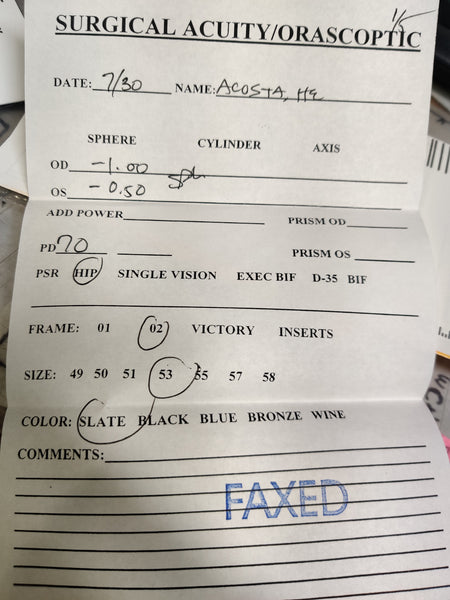 1/5
SURGICAL ACUITY/ORASCOPTIC
DATE: 7/30 NAME: ACOSTA, He
SPHERE CYLINDER AXIS
OD -1.00 sph
OS -0.50
ADD POWER PRISM OD
PD 70 PRISM OS
PSR HIP SINGLE VISION EXEC BIF D-35 BIF
FRAME: 01 02 VICTORY INSERTS
SIZE: 49 50 51 53 55 57 58
COLOR: SLATE BLACK BLUE BRONZE WINE
COMMENTS:
FAXED